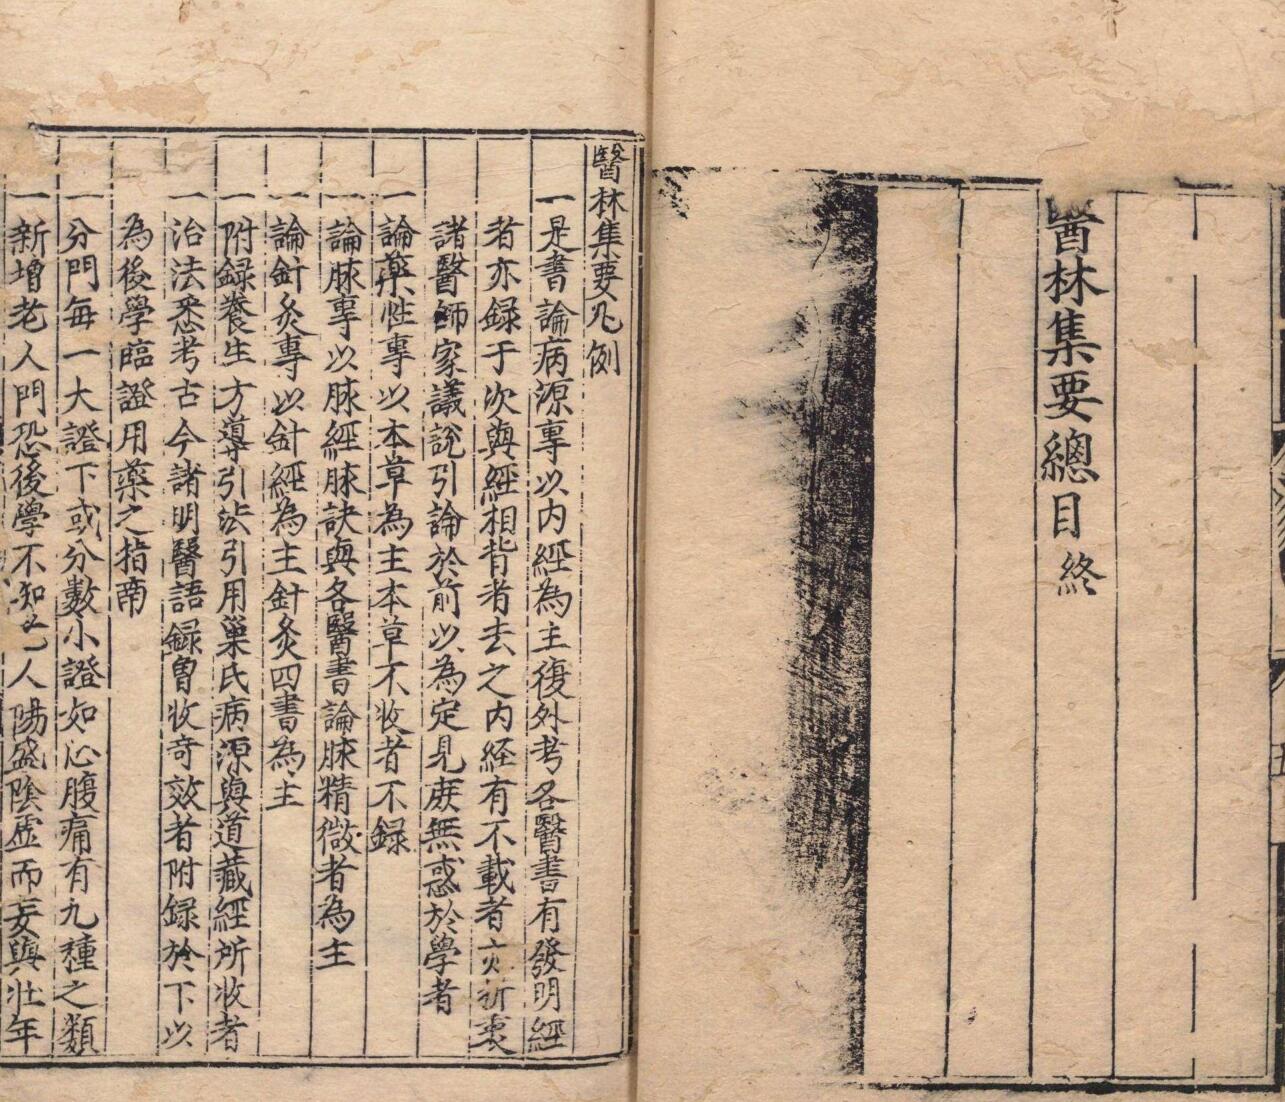 醫林集要總目終
醫林集要凡例
一是書論病源專以內經為主復外考各醫書有發明經
者亦録于次與經相背者去之内経有不載者亦折衷
諸醫師家議說引論於前以為定見庶無惑於學者
一論藥性專以本草為主本草不收者不録
一論脉專以脉經脉訣與各醫書論脉精微者為主
一論針灸專以針經為主針灸四書為主
一附録養生方導引法引用巢氏病源與道藏經所收者
一治法悉考古今諸明醫語録曽收奇效者附録於下以
為後學臨證用藥之指南
一分門每一大證下或分數小證如心腹痛有九種之類
一新增老人門恐後學不知老人陽盛陰虛而妄與壯年